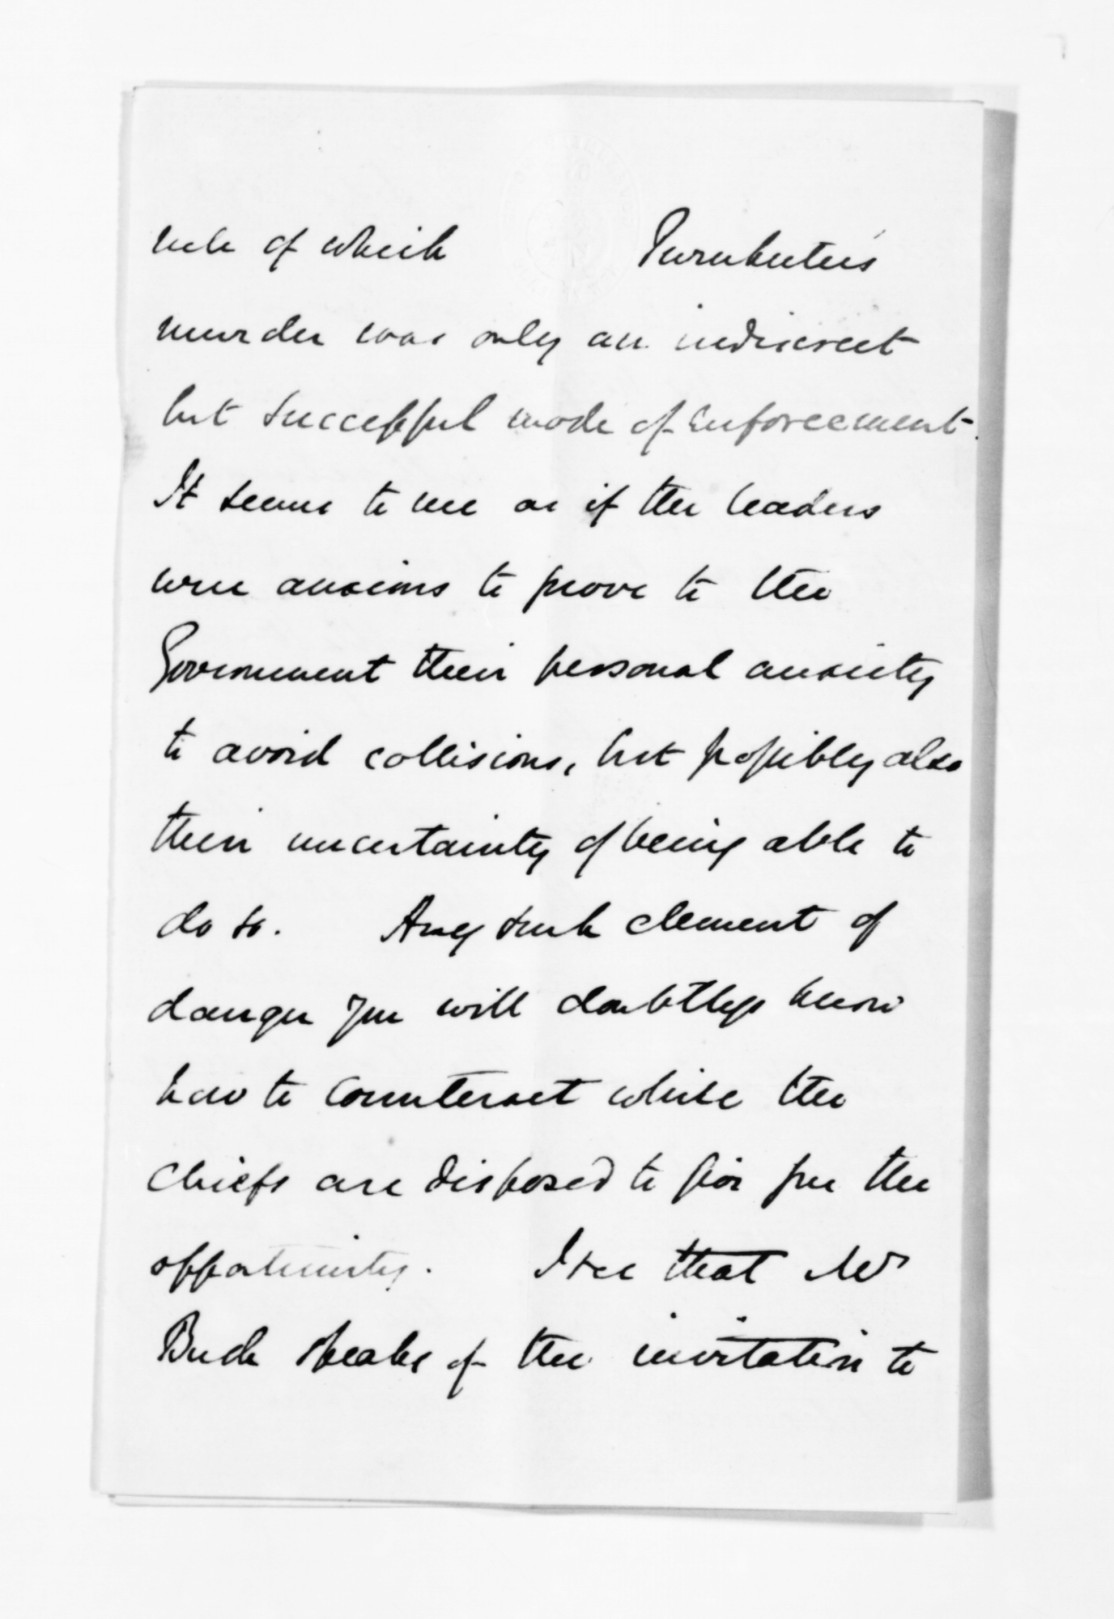 rule of which Purukutu's
murder was only an indiscreet
but successful mode of enforcement.
It seems to me as if the leaders
were anxious to prove to the
Government their personal anxiety
to avoid collisions, but possibly also
their uncertainty of being able to
do so. Any such element of
danger you will doubtless know
how to counteract while the
chiefs are disposed to give you the
opportunity. I see that Mr
Bush speaks of the invitation to